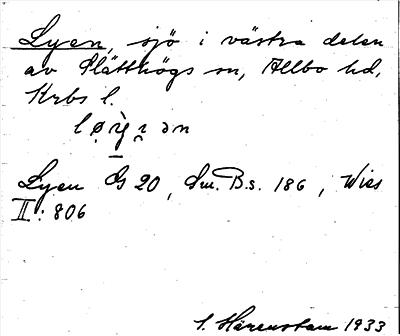 Lyen, sjö i västra delen
av Slätthögs sn, Allbo hd,
Krbs l.
Lyen G 20, Sm. B.s. 186, Wies
II: 806
S. Härenstam 1933